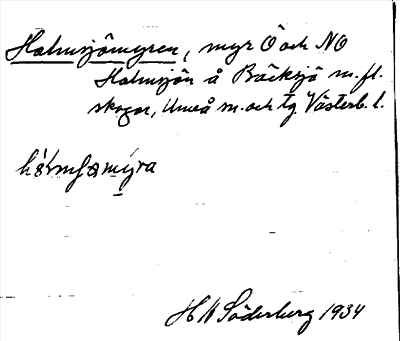 Holmsjömyren, myr Ö och NO
Holmsjön å Bäcksjö m.fl.
skogar, Umeå sn. och tg. Västerb. l.
H N Söderberg 1934